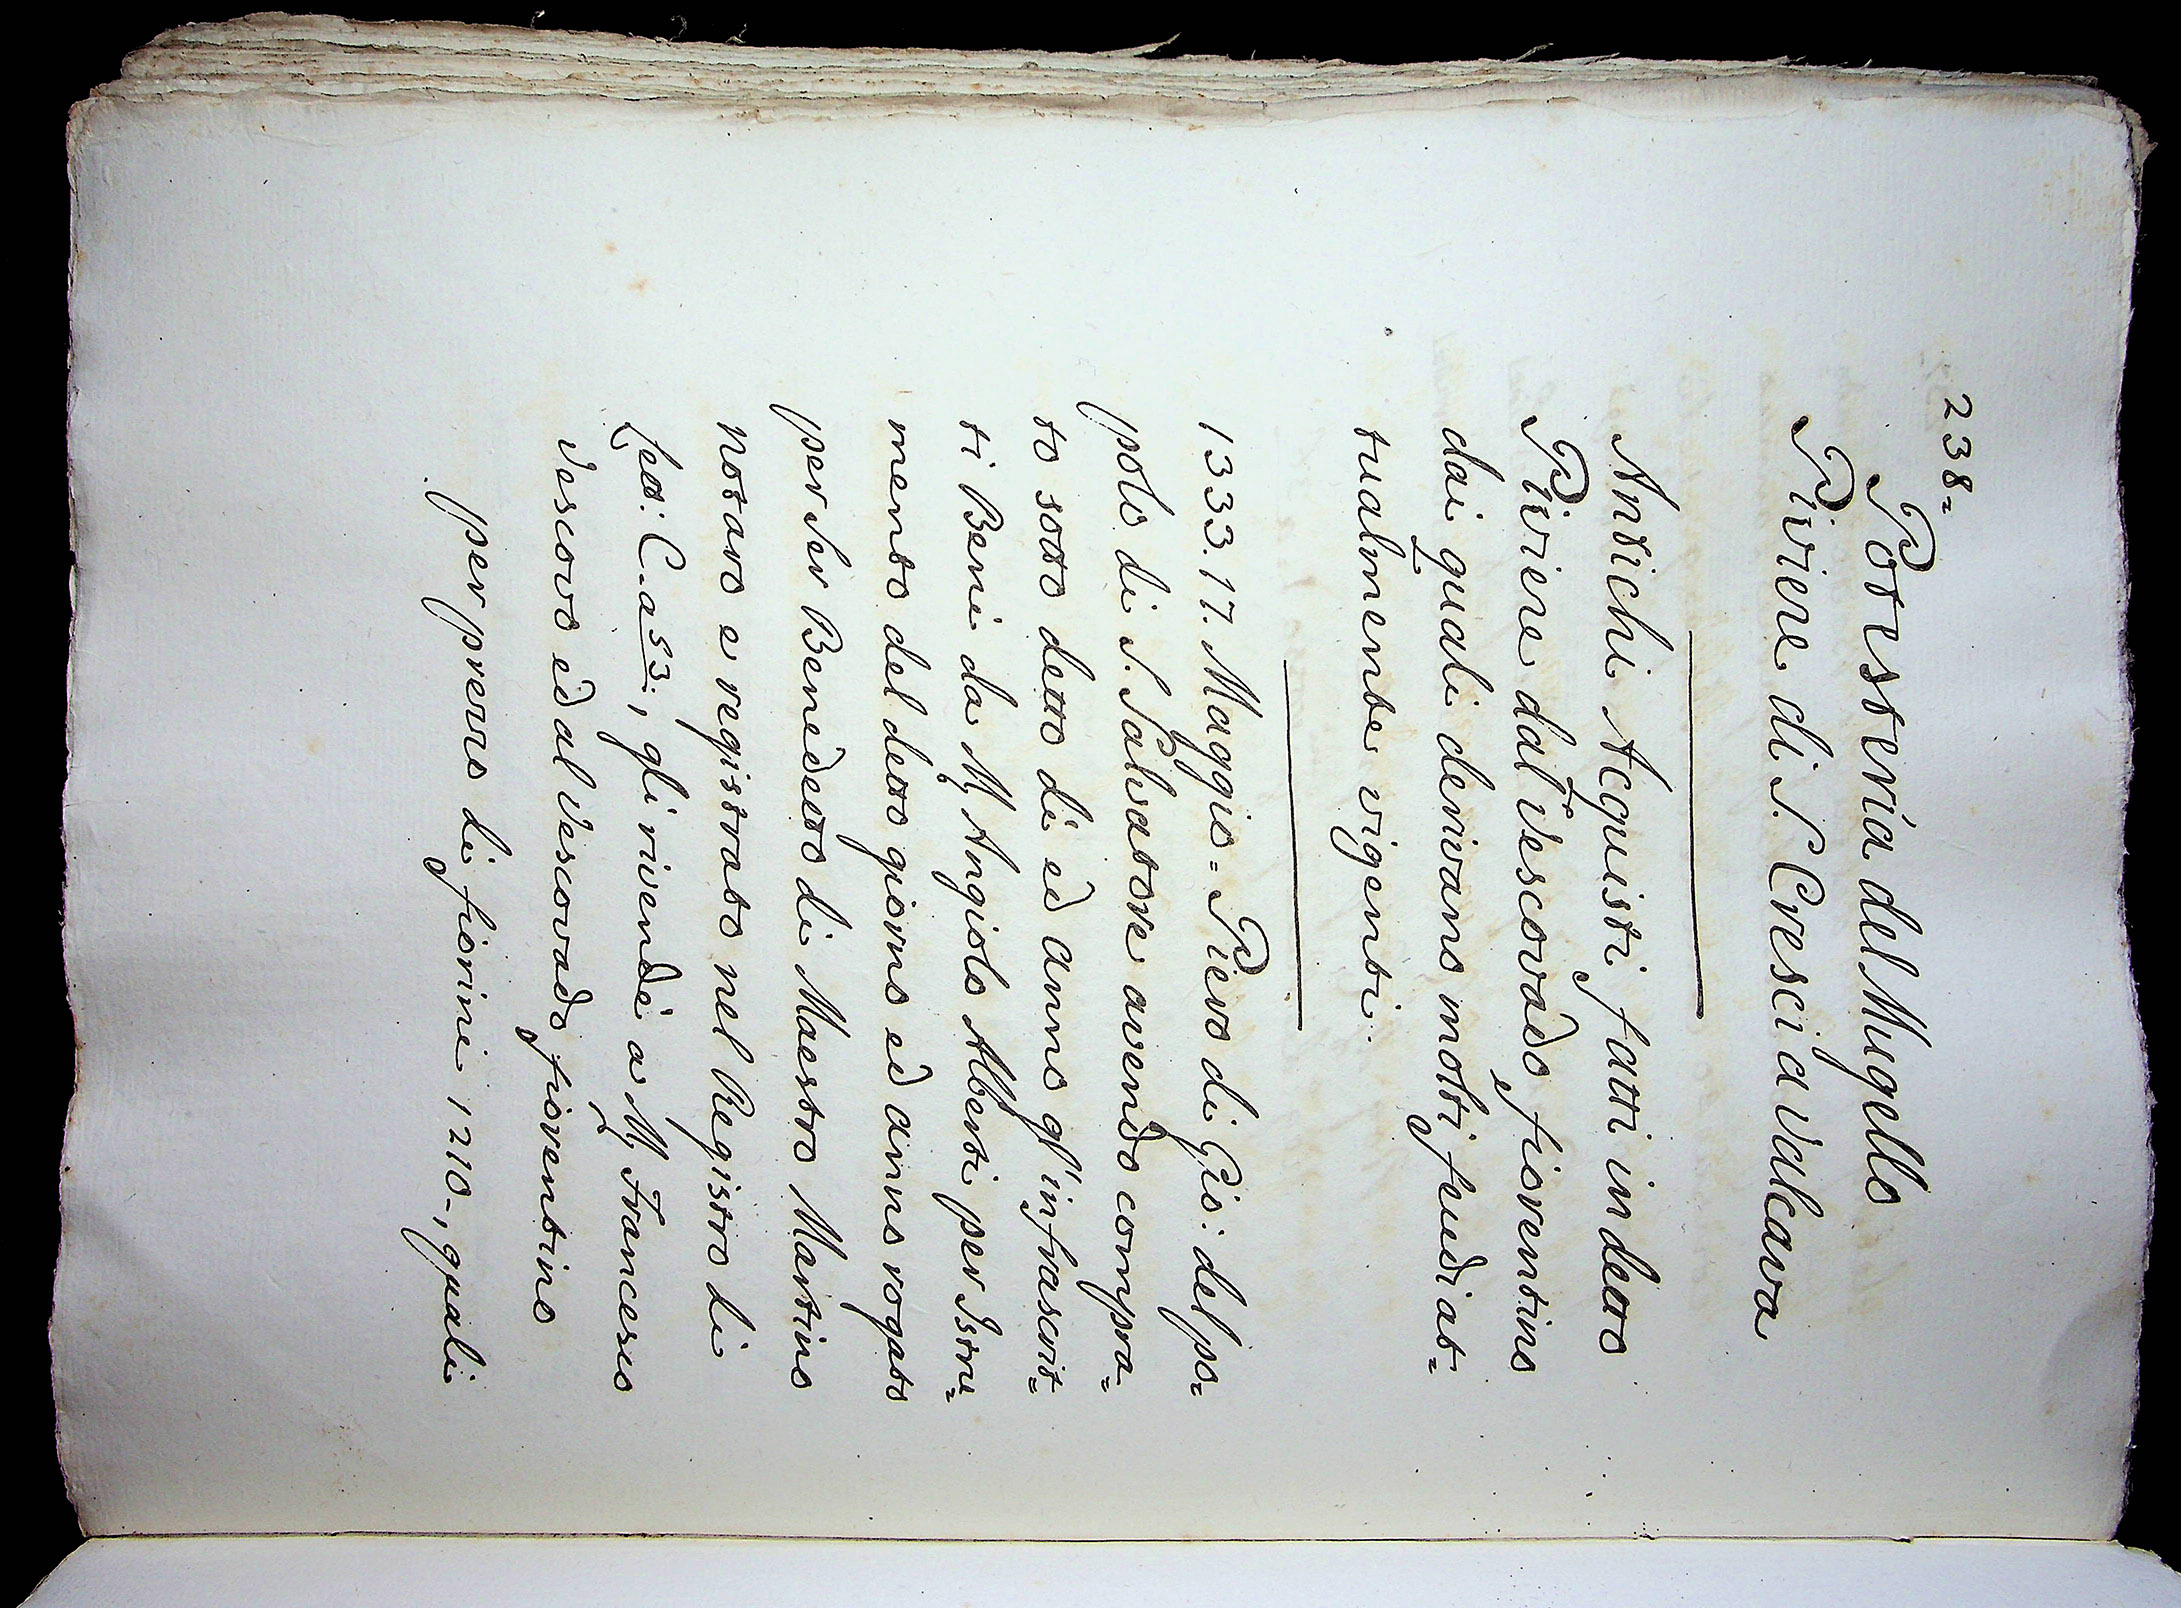 238=
Potesteria del Mugello
Piviere di S. Cresci a Valcava
Antichi Acquisti fatti in detto
Piviere dal Vescovado fiorentino
dai quali derivano molti feudi at=
tualmente vigenti.
1333. 17. Maggio = Piero di Gio: del po=
polo di S. Salvatore avendo compra=
to sotto detto dì ed anno gl'infrascrit=
ti Beni da M. Angiolo Alberti per Istru=
mento del detto giorno ed anno rogato
per Ser Benedetto di Maestro Martino
notaro e registrato nel Registro di
Lett: C. a 53:, gli rivendè a M. Francesco
Vescovo ed al Vescovado fiorentino
per prezzo di fiorini 1210-, quali